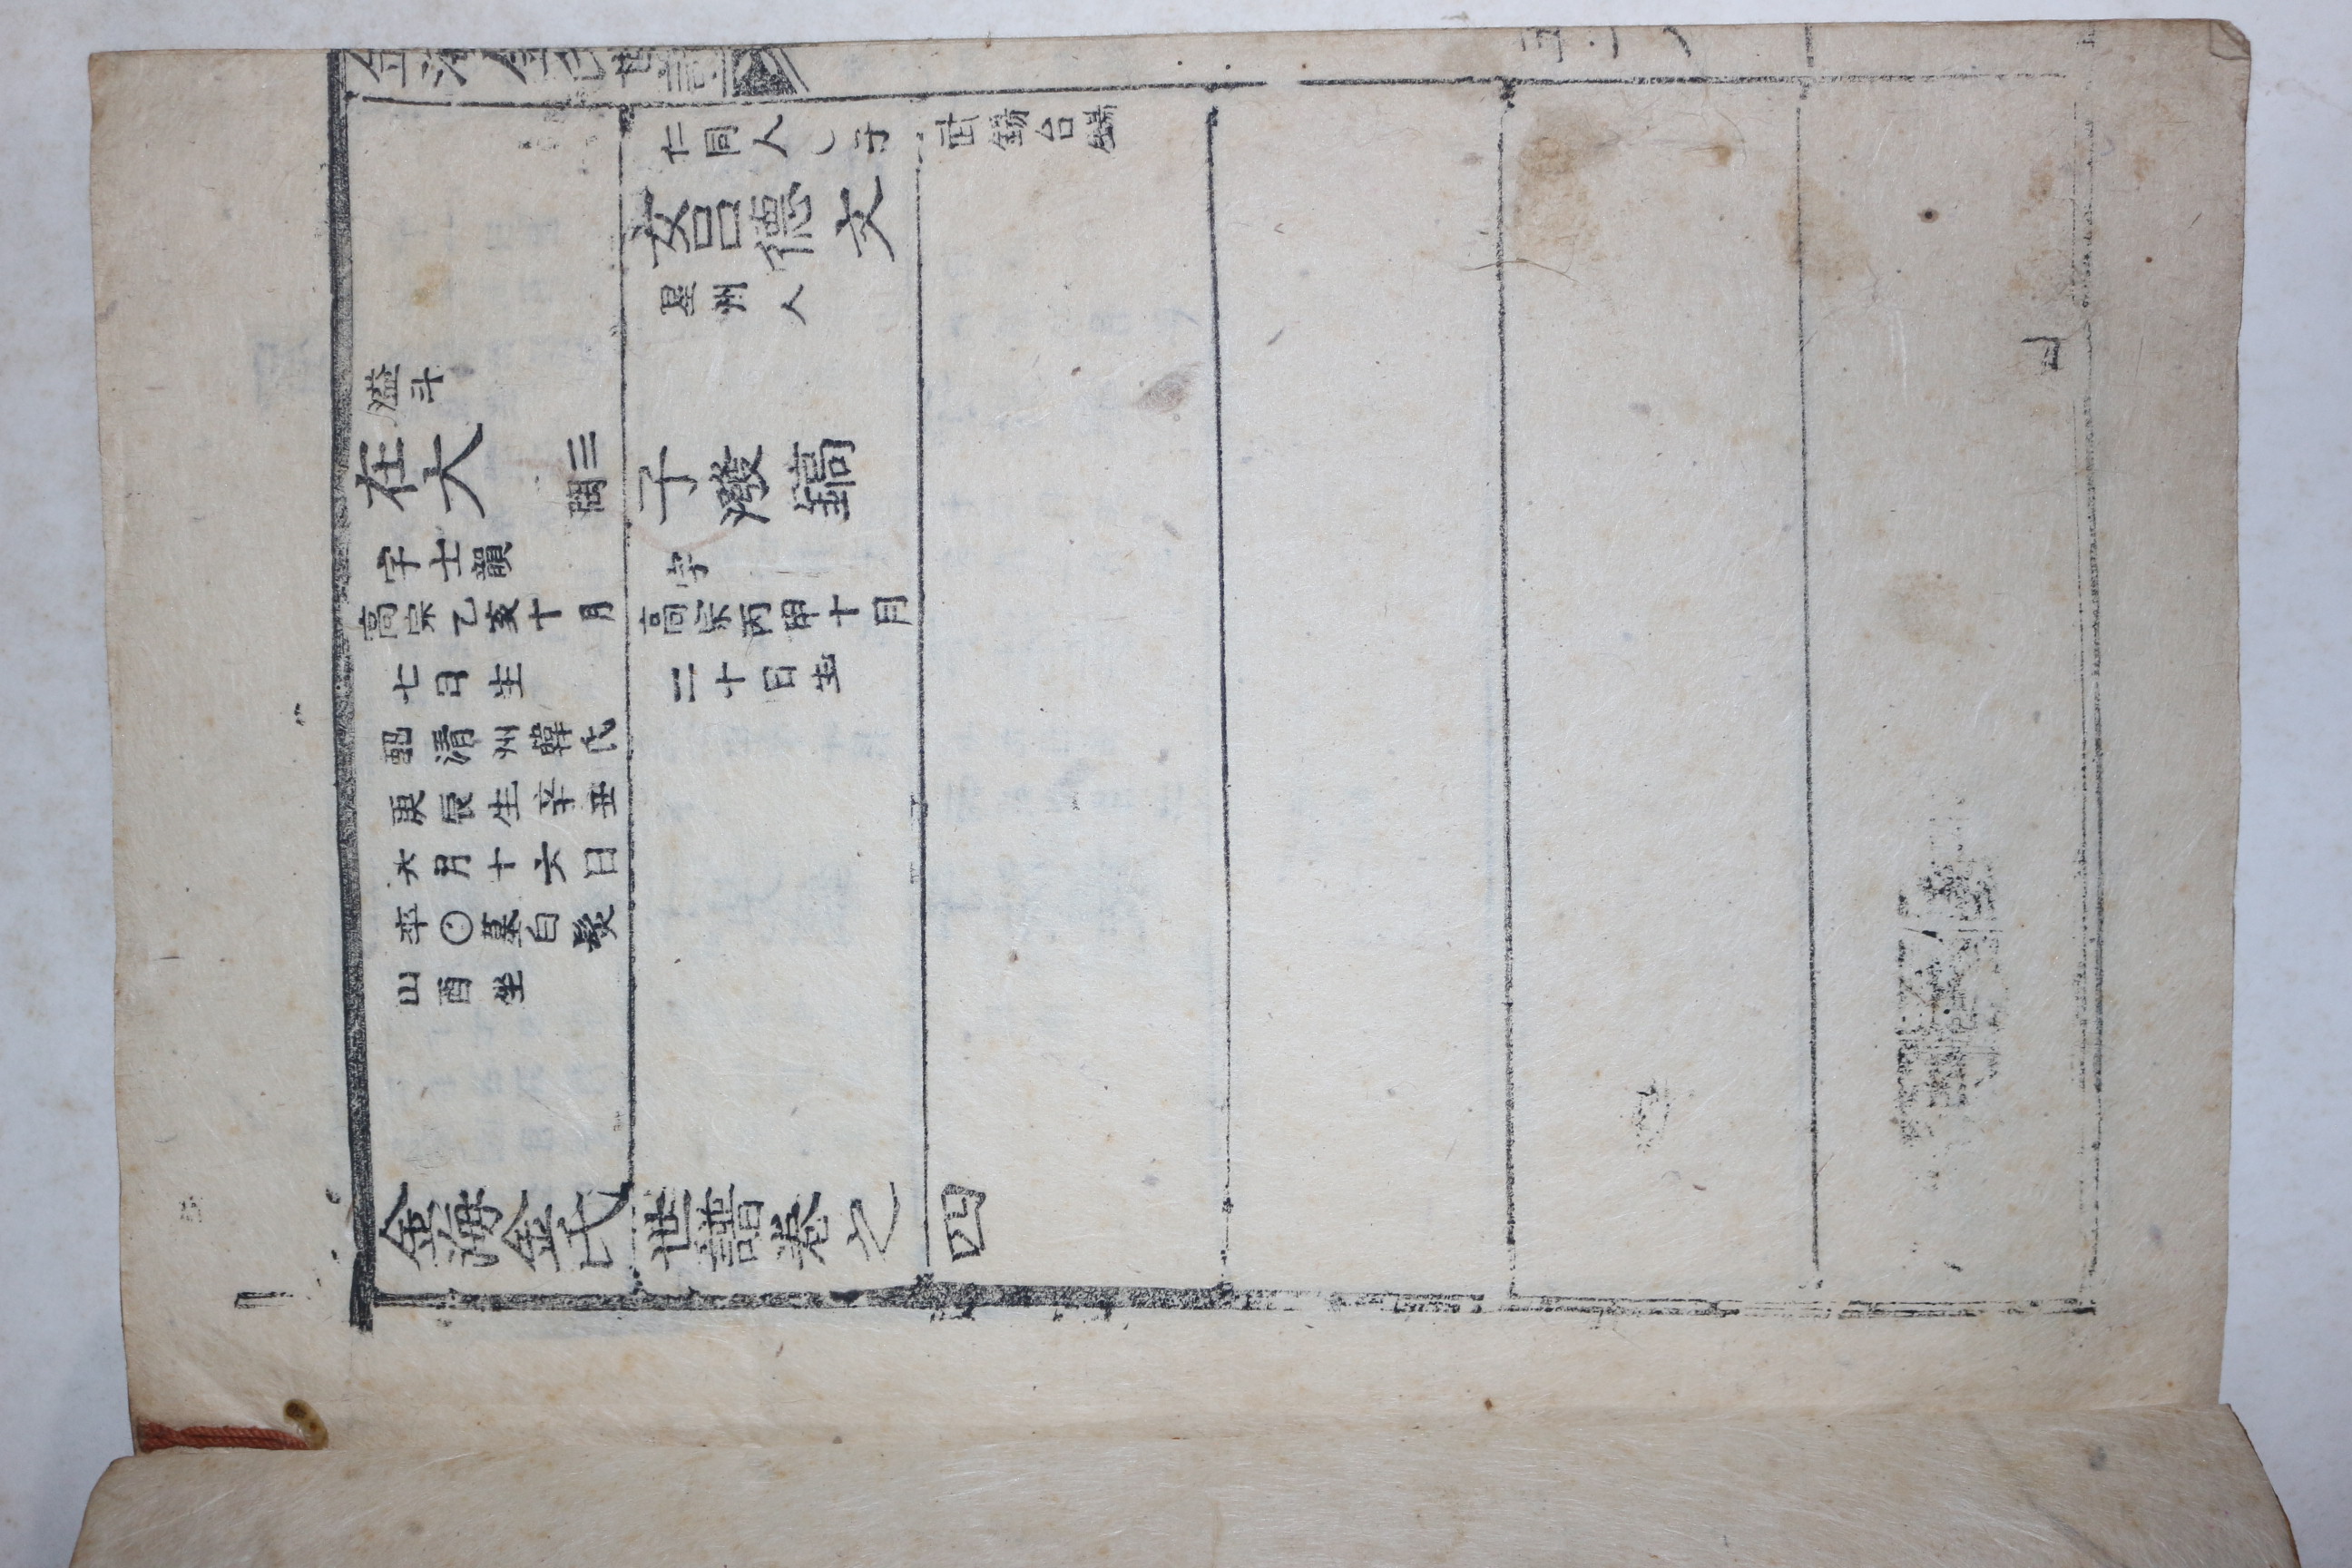 金海金氏世譜
仁同人 子
女呂德文
星州人
溢斗
在大
字士韻
高宗乙亥十月
七日生
配清州韓氏
庚辰生辛丑
六月十六日
卒○墓白髮
山酉坐
三
子 鎬
字
高宗丙申十月
二十日生
金海金氏世譜卷之四